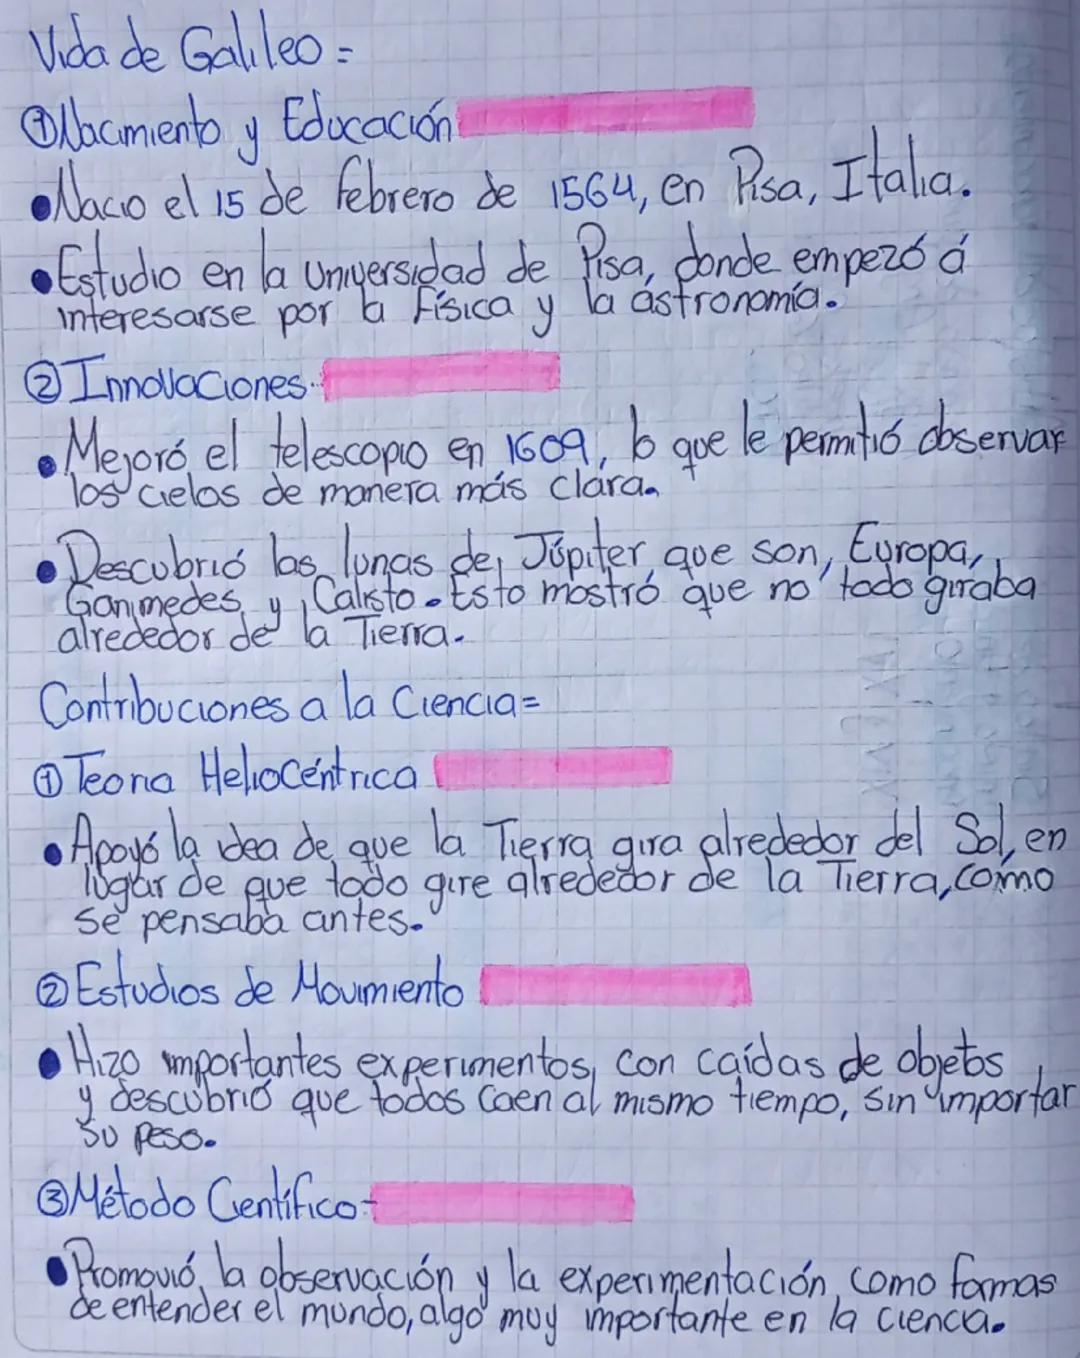 Vida de Galileo =
① Nacimiento y Educación
• Nacio el 15 de febrero de 1564, en Pisa, Italia.
• Estudio en la universidad de Pisa, donde empezó á
interesarse por la Física y la ástronomía.
② Innovaciones.
• Mejoró el telescopio en 1609, lo que le permitió observar
los cielos de manera más clara.
• Descubrió las lunas de Júpiter que son, Europa,
Ganimedes y Calisto. Esto mostró que no todo giraba
alrededor de la Tierra.
Contribuciones a la Ciencia =
① Teoria Heliocéntrica
• Apoyó la idea de que la Tierra gira alrededor del Sol, en
lugar de que todo gire alrededor de la Tierra, como
se pensaba antes.
② Estudios de Movimiento
• Hizo importantes experimentos, con caídas de objetos
y descubrió que todos caen al mismo tiempo, sin importar
su peso.
③ Método Científico -
• Promovió la observación y la experimentación como formas
de entender el mundo, algo muy importante en la ciencia.